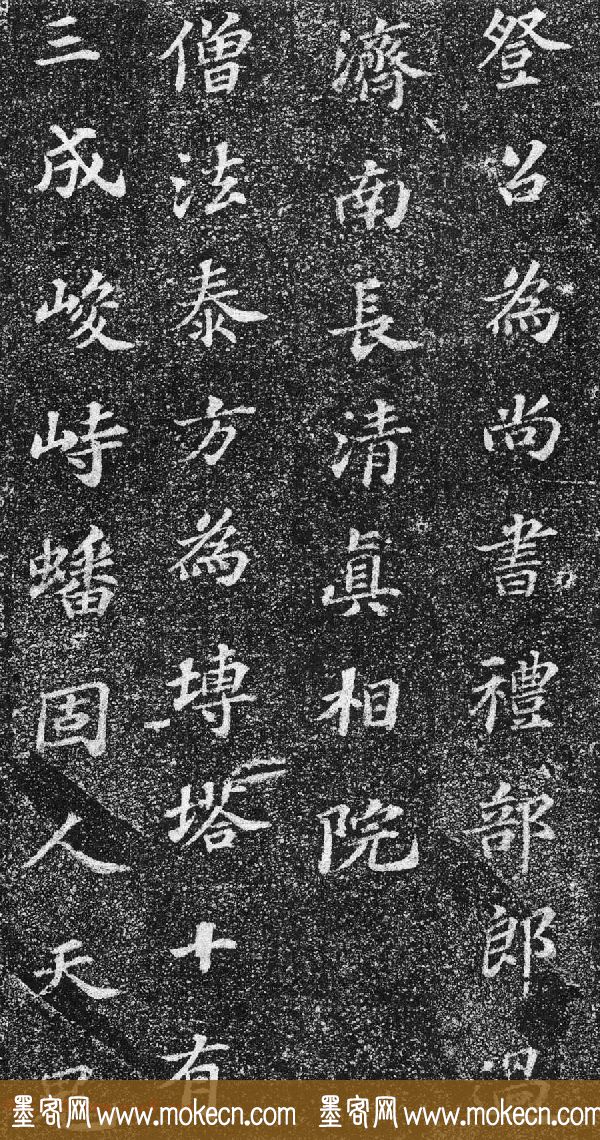 登召為尚書禮部郎過
濟南長清眞相院
僧法泰方為塼塔十有
三成峻峙蟠固人天
墨客网 www.mokecn.com 墨客网 www.mokecn.com